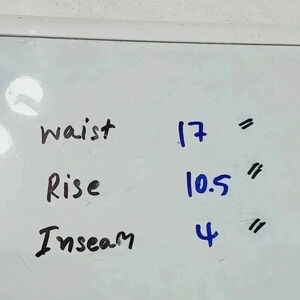 Waist 17 "
Rise 10.5 "
Inseam 4 "